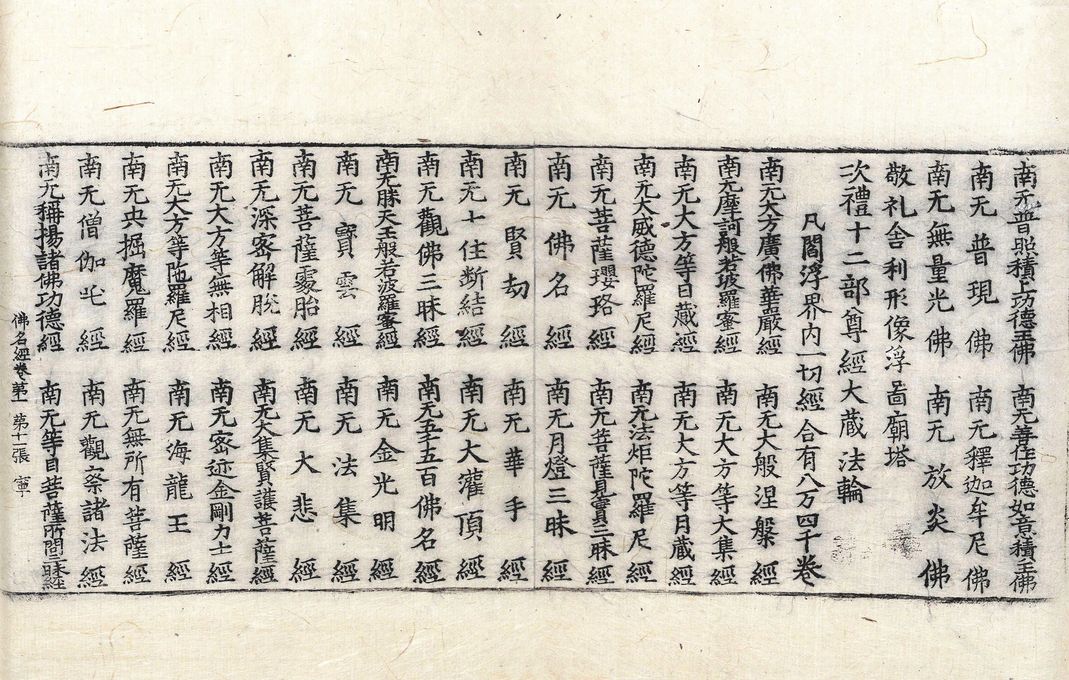 南无普照積上功德王佛　南无善住功德如意積王佛
南无普現佛　南无釋迦牟尼佛
南无無量光佛　南无放炎佛
敬礼舍利形像浮啚廟塔
次禮十二部尊經大蔵法輪
凡閻浮界内一切經合有八万四千卷
南无大方廣佛華嚴經　南无大般涅槃經
南无摩訶般若波羅蜜經　南无大方等大集經
南无大方等日蔵經　南无大方等月蔵經
南无大威德陀羅尼經　南无法炬陀羅尼經
南无菩薩瓔珞經　南无菩薩見實三昧經
南无佛名經　南无月燈三昧經
南无賢劫經　南无華手經
南无十住断結經　南无大灌頂經
南无觀佛三昧經　南无五千五百佛名經
南无勝天王般若波羅蜜經　南无金光明經
南无寶雲經　南无法集經
南无菩薩處胎經　南无大悲經
南无深密解脫經　南无大集賢護菩薩經
南无大方等無相經　南无密迹金剛力士經
南无大方等陁羅尼經　南无海龍王經
南无央掘魔羅經　南无無所有菩薩經
南无僧伽吒經　南无觀察諸法經
南无稱揚諸佛功德經　南无等目菩薩所問三昧經
佛名經卷第一　第十一張